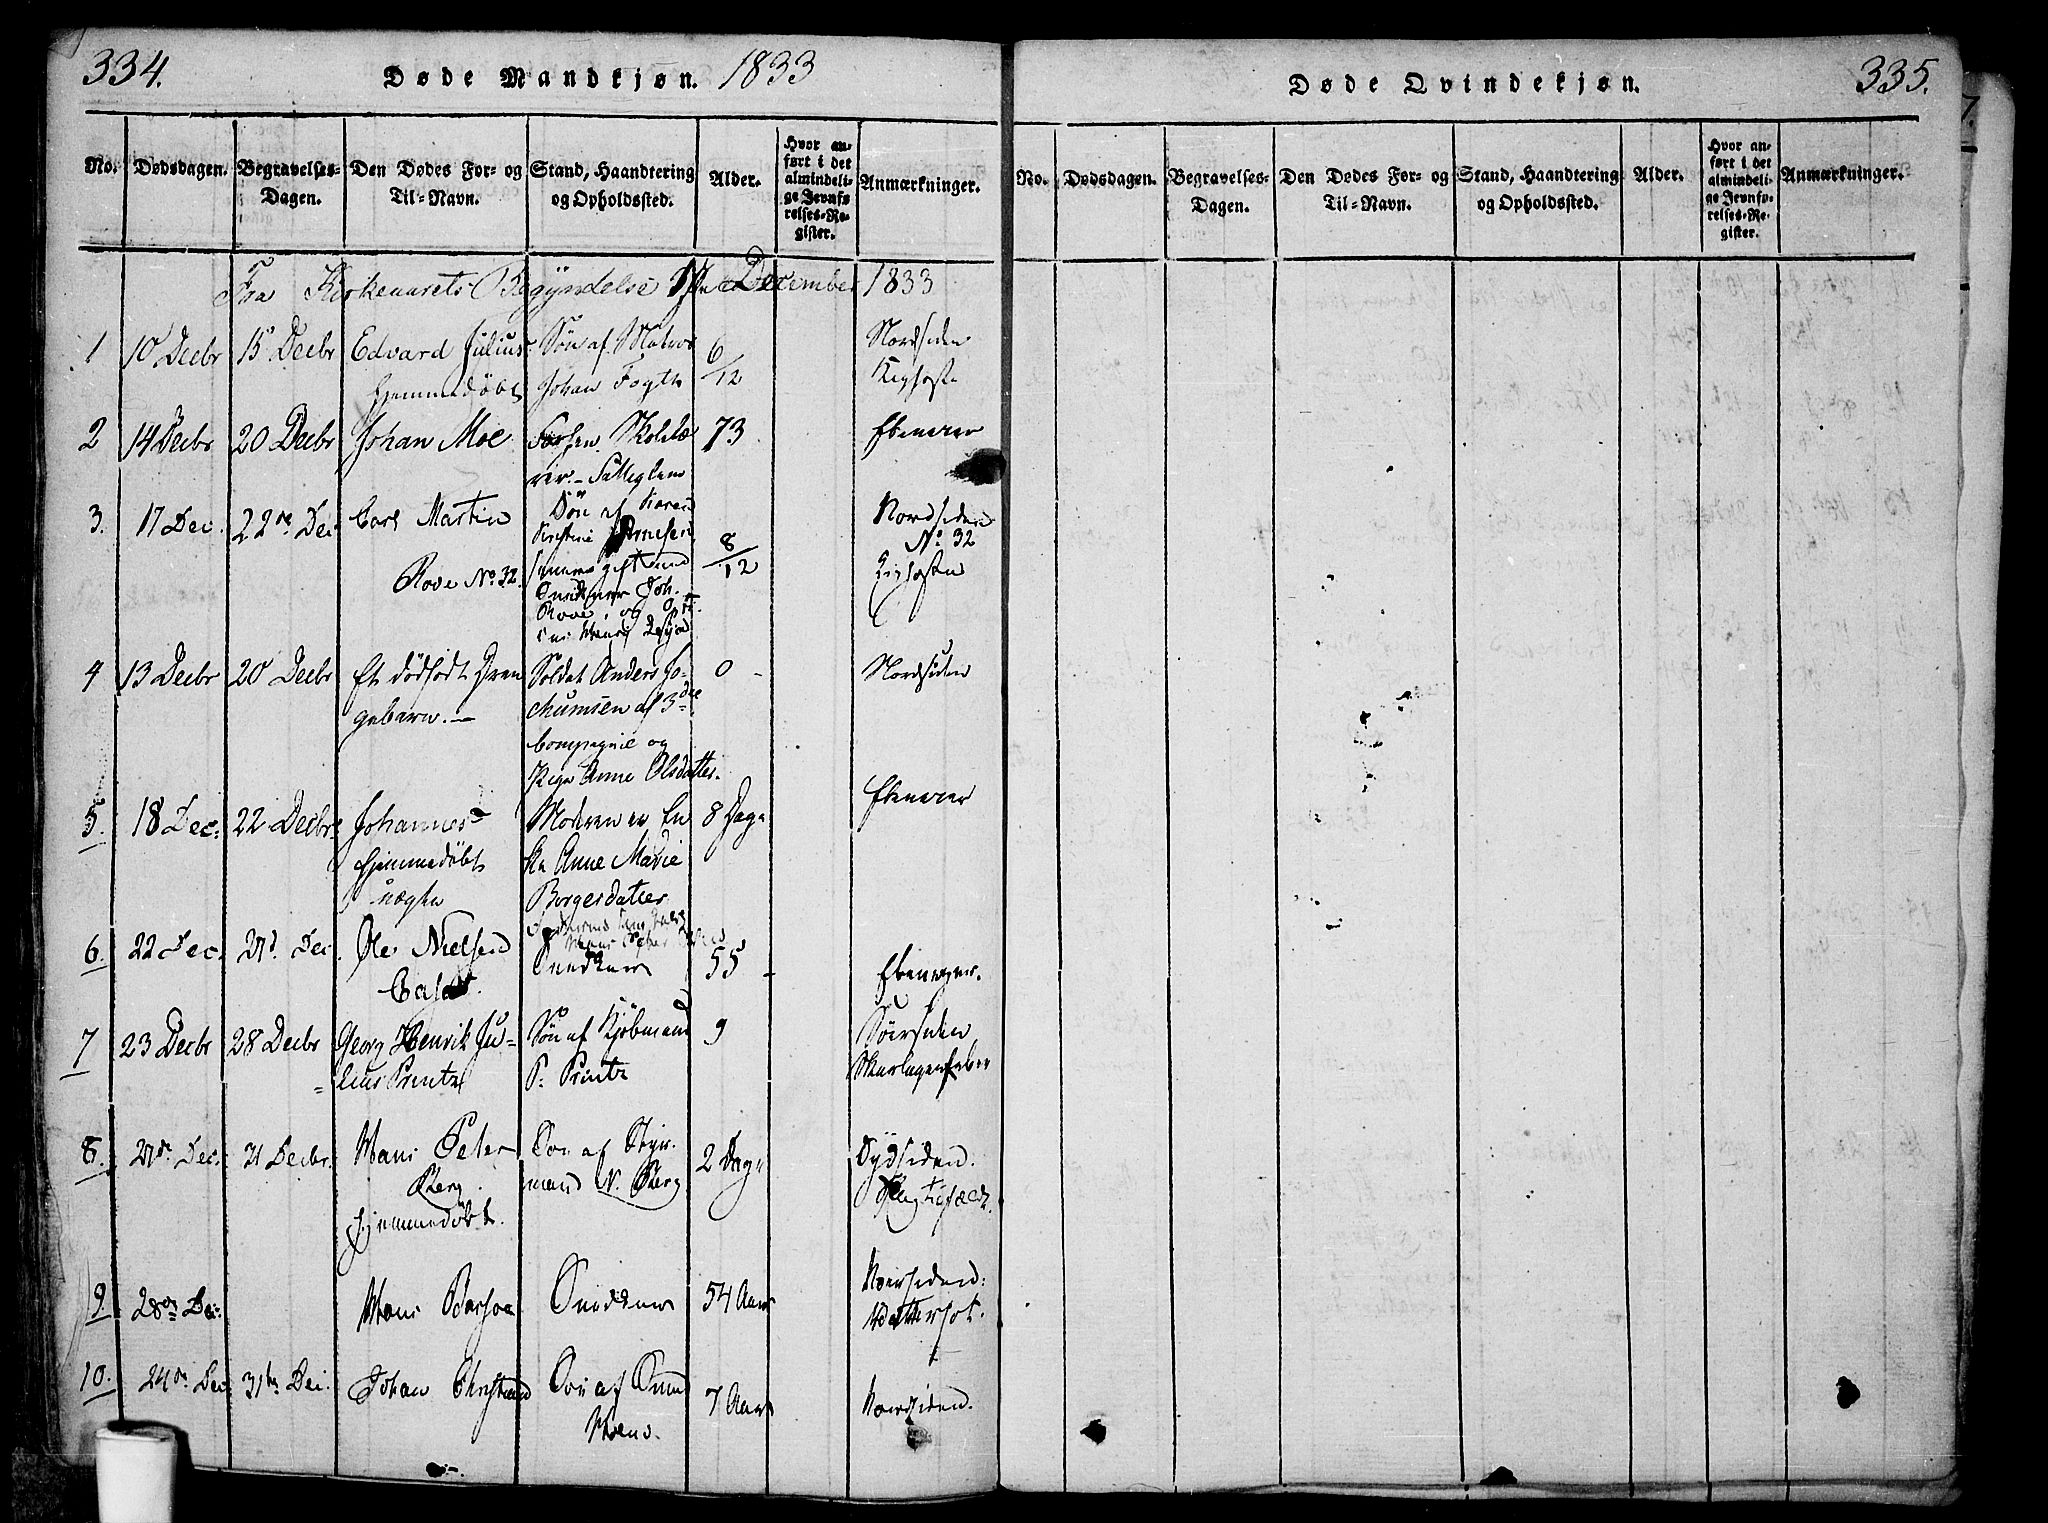 334.
Døde Mandkjøn. 1833
No. Dødsdagen. Begravelses-Dagen. Den Dødes For- og Til-Navn. Stand, Haandtering og Opholdssted. Alder. Hvor anført i det almindelige Jevnførelses-Register. Anmærkninger.
Fra Kirkeaarets Begyndelse December 1833
1 10 Decbr 15 Decbr Edvard Julius Søn af Matros 6/12 Nordsiden
hjemmedøbt Johan Fogth Kighoste
2 14 Decbr 20 Decbr Johan Moe 73 Ebenezer
3. 17 Dec. 22de Dec Carl Martin Søn af Karen Nordsiden
Kirstine No 32
Rove No 32. 8/12 Kighosten
Snedker Joh.
Rove, og
4 13 Decbr 20 Decbr Et dødfødt Dren Soldat Anders Jo- 0 Nordsiden
gebarn. chumsen af 3die
Compagnie og
Pige Anne Olsdatter.
5. 18 Dec. 22 Decbr Johannes Moderen er En 8 Dage Ebenezer
hjemmedøbt ke Anne Marie
uægte Borgersdatter
6. 22 Dec. Dec. Ole Nielsen Snedker 55 Ebenezer.
7 23 Decbr 28 Decbr Georg Henrik Ju- Søn af Kjøbmand 9 Sørsiden
lius Printz P. Printz Skarlagensfeber
8. Dec. 31 Decbr. Hans Peter Søn af Styr- 2 Dage Sydsiden.
Berg. mand N. Berg
hjemmedøbt.
9. 28de Dec. Hans Snedker 54 Aar Nordsiden.
Vattersot.
10. 24de Dec 31te Dec. Johan Christian Søn af 7 Aar Nordsiden.
335.
Døde Qvindekjøn.
No. Dødsdagen. Begravelses-Dagen. Den Dødes For- og Til-Navn. Stand, Haandtering og Opholdssted. Alder. Hvor anført i det almindelige Jevnførelses-Register. Anmærkninger.